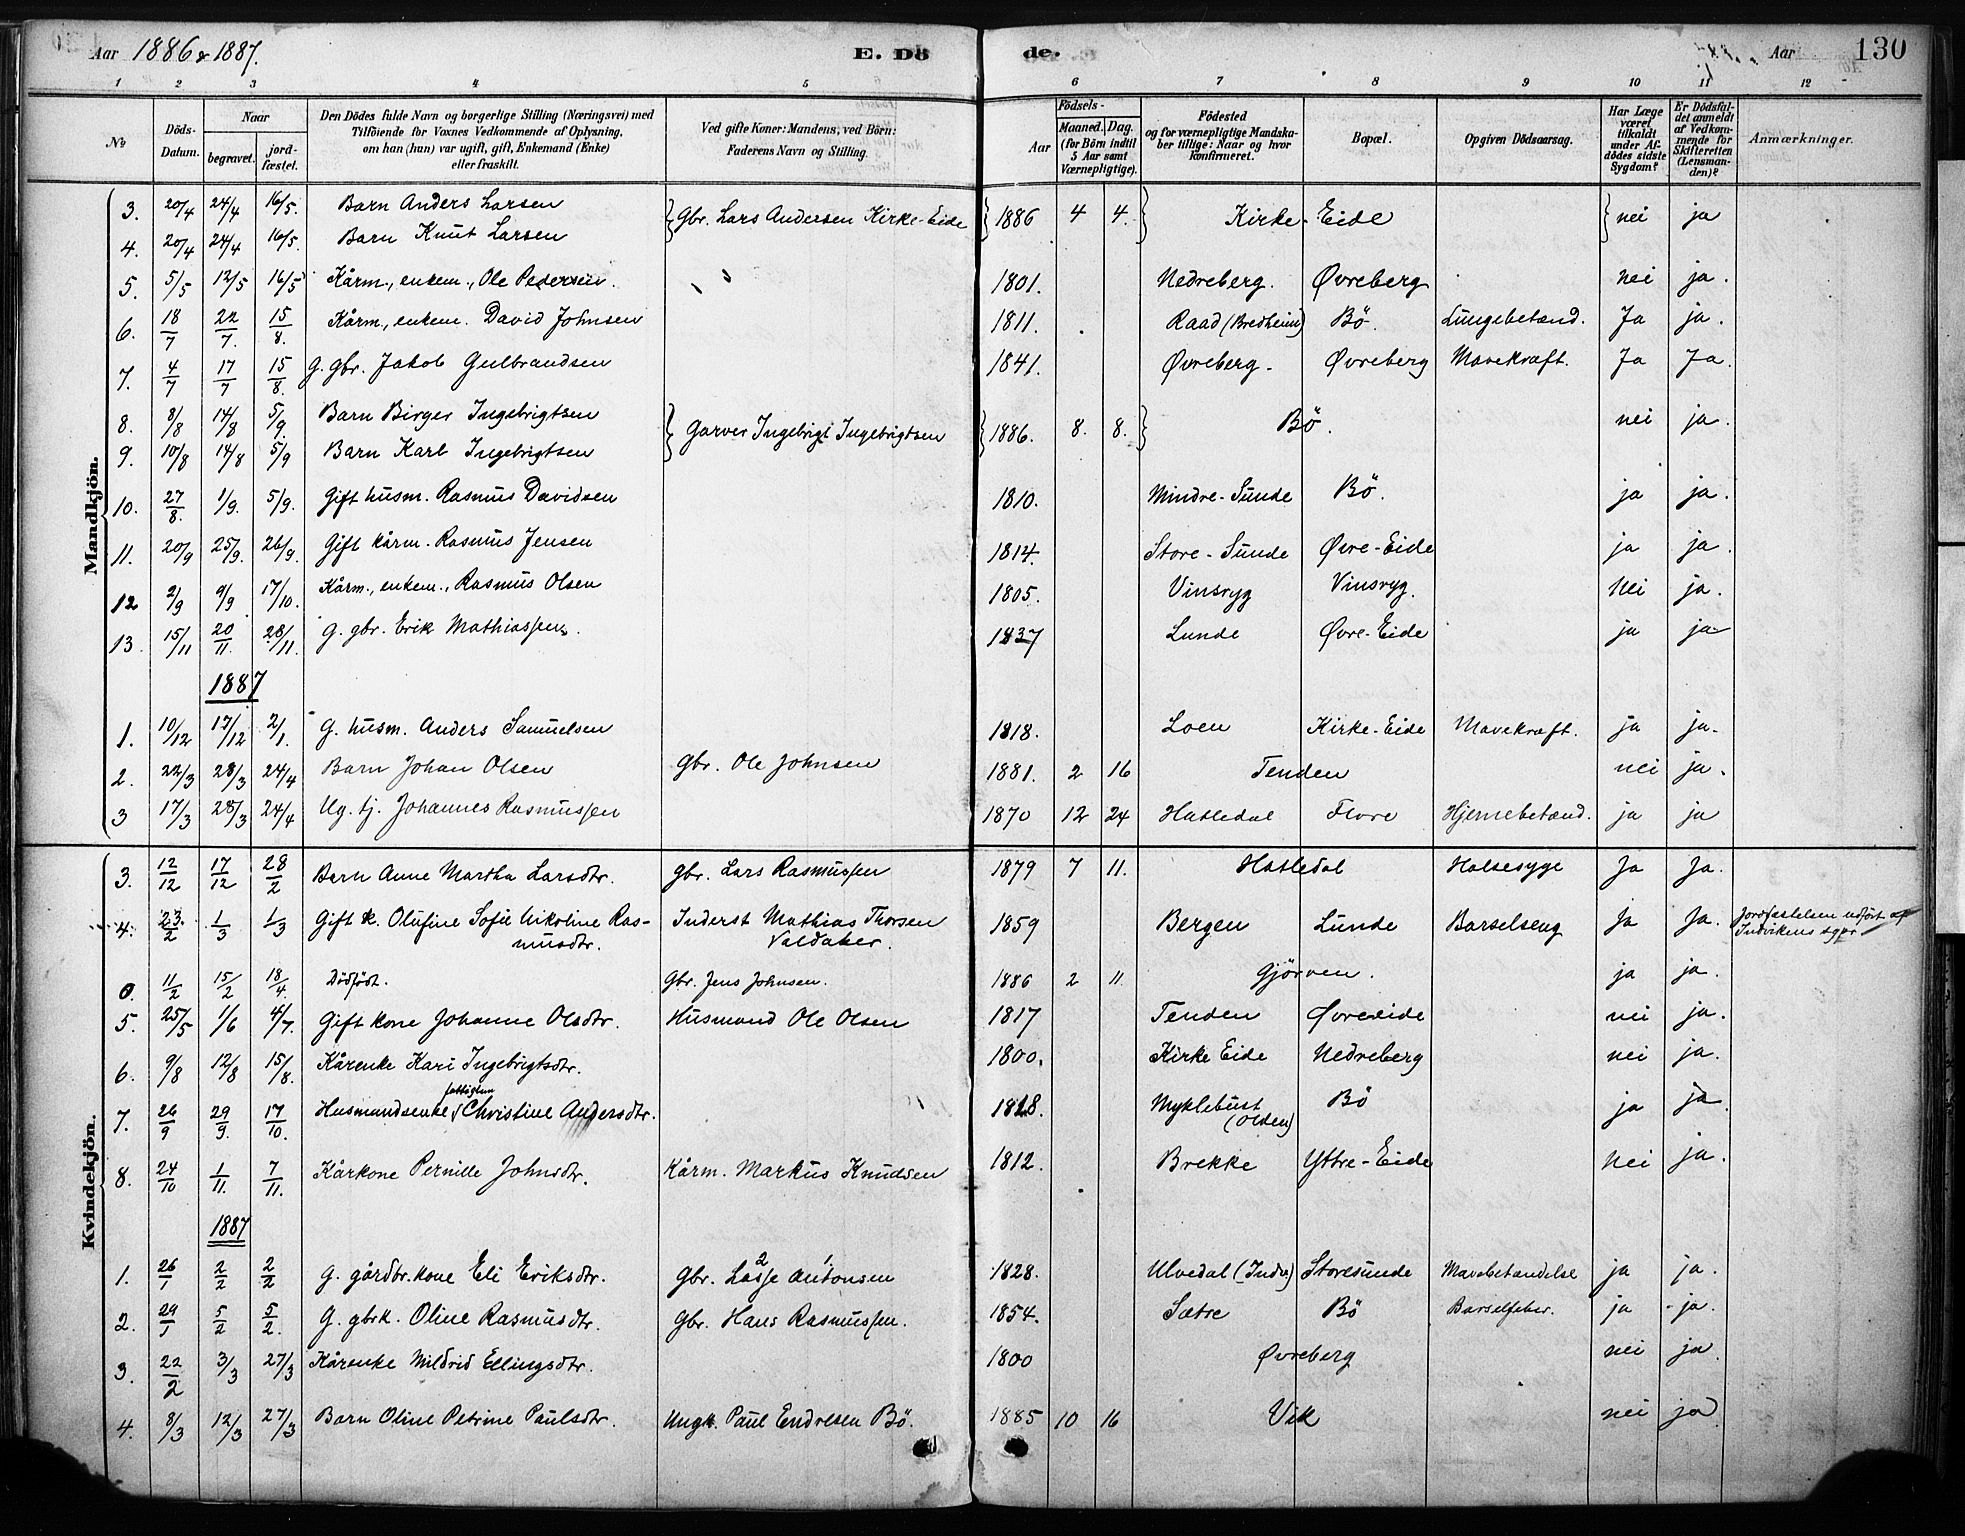 Aar 1886 & 1887. E. Döde. Aar 130
1 2 3 4 5 6 7 8 9 10 11 12
No Döds-Datum. Naar begravet. jordfæstet. Den Dödes fulde Navn og borgerlige Stilling (Næringsvei) med Tilföiende for Voxnes Vedkommende af Oplysning, om han (hun) var ugift, gift, Enkemand (Enke) eller fraskilt. Ved gifte Koner: Mandens, ved Börn: Faderens Navn og Stilling. Födsels- Aar Maaned. Dag. (for Börn indtil 5 Aar samt Værnepligtige). Födested og for værnepligtige Mandskaber tillige: Naar og hvor konfirmeret. Bopæl. Opgiven Dödsaarsag. Har Læge været tilkaldt under Afdödes sidste Sygdom? Er Dödsfaldet anmeldt af Vedkommende for Skifteretten (Lensmanden)? Anmærkninger.
Mandkjön.
3. 20/4 24/4 16/5. Barn Anders Larsen } Gbr. Lars Andersen Kirke-Eide } 1886 4 4. } Kirke-Eide } nei ja
4. 20/4 24/4 16/5. Barn Knut Larsen
5. 5/5 12/5 16/5 Kårm., enkem., Ole Pedersen. 1801. Nedreberg. Øvreberg nei ja.
6. 18/7 22/7. 15/8. Kårm., enkem. David Johnsen 1811. Raad (Bredheim) Bö. Lungebetænd. Ja ja.
7. 4/7 17/7 15/8. G. gbr. Jakob Gulbrandsen 1841. Øvreberg. Øvreberg Mavekræft. Ja Ja
8. 8/8 14/8 5/9 Barn Birger Ingebrigtsen } Garver Ingebrigt Ingebrigtsen } 1886. 8. 8. } Bö. nei ja.
9. 10/8 14/8 5/9 Barn Karl Ingebrigtsen
10. 27/8. 1/9. 5/9. Gift husm. Rasmus Davidsen 1810. Mindre-Sunde Bö. ja ja.
11. 20/9 25/9. 26/9. Gift kårm. Rasmus Jensen 1814. Store-Sunde Øvre-Eide ja ja.
12 2/9 9/9 17/10. Kårm., enkem., Rasmus Olsen 1805. Vinsryg Vinsryg. Nei ja.
13. 15/11 20/11 28/11. G. gbr. Erik Mathiassen. 1837 Lunde Øvre-Eide ja ja
1887
1. 10/12 17/12 2/1. G. husm. Anders Samuelsen 1818. Loen Kirke-Eide Mavekræft. ja ja.
2. 22/3 28/3 24/4 Barn Johan Olsen Gbr. Ole Johnsen 1881. 2 16 Tenden nei ja.
3 17/3 28/3 24/4 Ug. tj. Johannes Rasmussen 1870 12 24 Hatledal Flore Hjernebetænd. ja ja
Kvindekjön.
3. 12/12 17/12 28/2 Barn Anne Martha Larsdtr. Gbr. Lars Rasmussen 1879 7 11. Hatledal Halsesyge Ja Ja.
4. 23/2 1/3 1/3 Gift k. Olufine Sofie Nikoline Ras- Inderst Mathias Thorsen 1859 Bergen Lunde Barselseng Ja Ja. Jordfæstelsen udført af
musdtr. Valdaker. Indvikens sgpr
0. 11/2 15/2 18/4. Dödfödt. Gbr. Jens Johnsen. 1886 2 11. Gjörven. ja ja.
5. 25/5 1/6 4/7. Gift kone Johanne Olsdtr. Husmand Ole Olsen 1817 Tenden Øvreeide nei ja.
6. 9/8 12/8 15/8. Kårenke Kari Ingebrigtsdtr. 1800. Kirke Eide Nedreberg nei ja.
7. 26/9 29/9. 17/10. Husmandsenke, fattiglem Christine Andersdtr. 1828. Myklebust (Olden) Bö ja ja.
8. 24/10 1/11. 7/11. Kårkone Pernille Johnsdtr. Kårm. Markus Knudsen 1812. Brekke Yttre-Eide nei ja.
1887
1. 26/1 2/2 2/2 G. gårdbr. kone Eli Eriksdtr. Gbr. Lasse Antonsen 1828. Ulvedal (Indv.) Storesunde Mavebetændelse ja ja.
2. 29/1 5/2 5/2. G. gbrk. Oline Rasmusdtr. Gbr. Hans Rasmussen. 1854. Sætre Bö Barselfeber. ja ja.
3. 22/2 3/3 27/3 Kårenke Mildrid Ellingsdtr. 1800 Øvreberg nei ja.
4. 8/3 12/3 27/3 Barn Oline Petrine Paulsdtr. Ungk. Paul Endresen Bö. 1885 10 16 Vik nei ja.